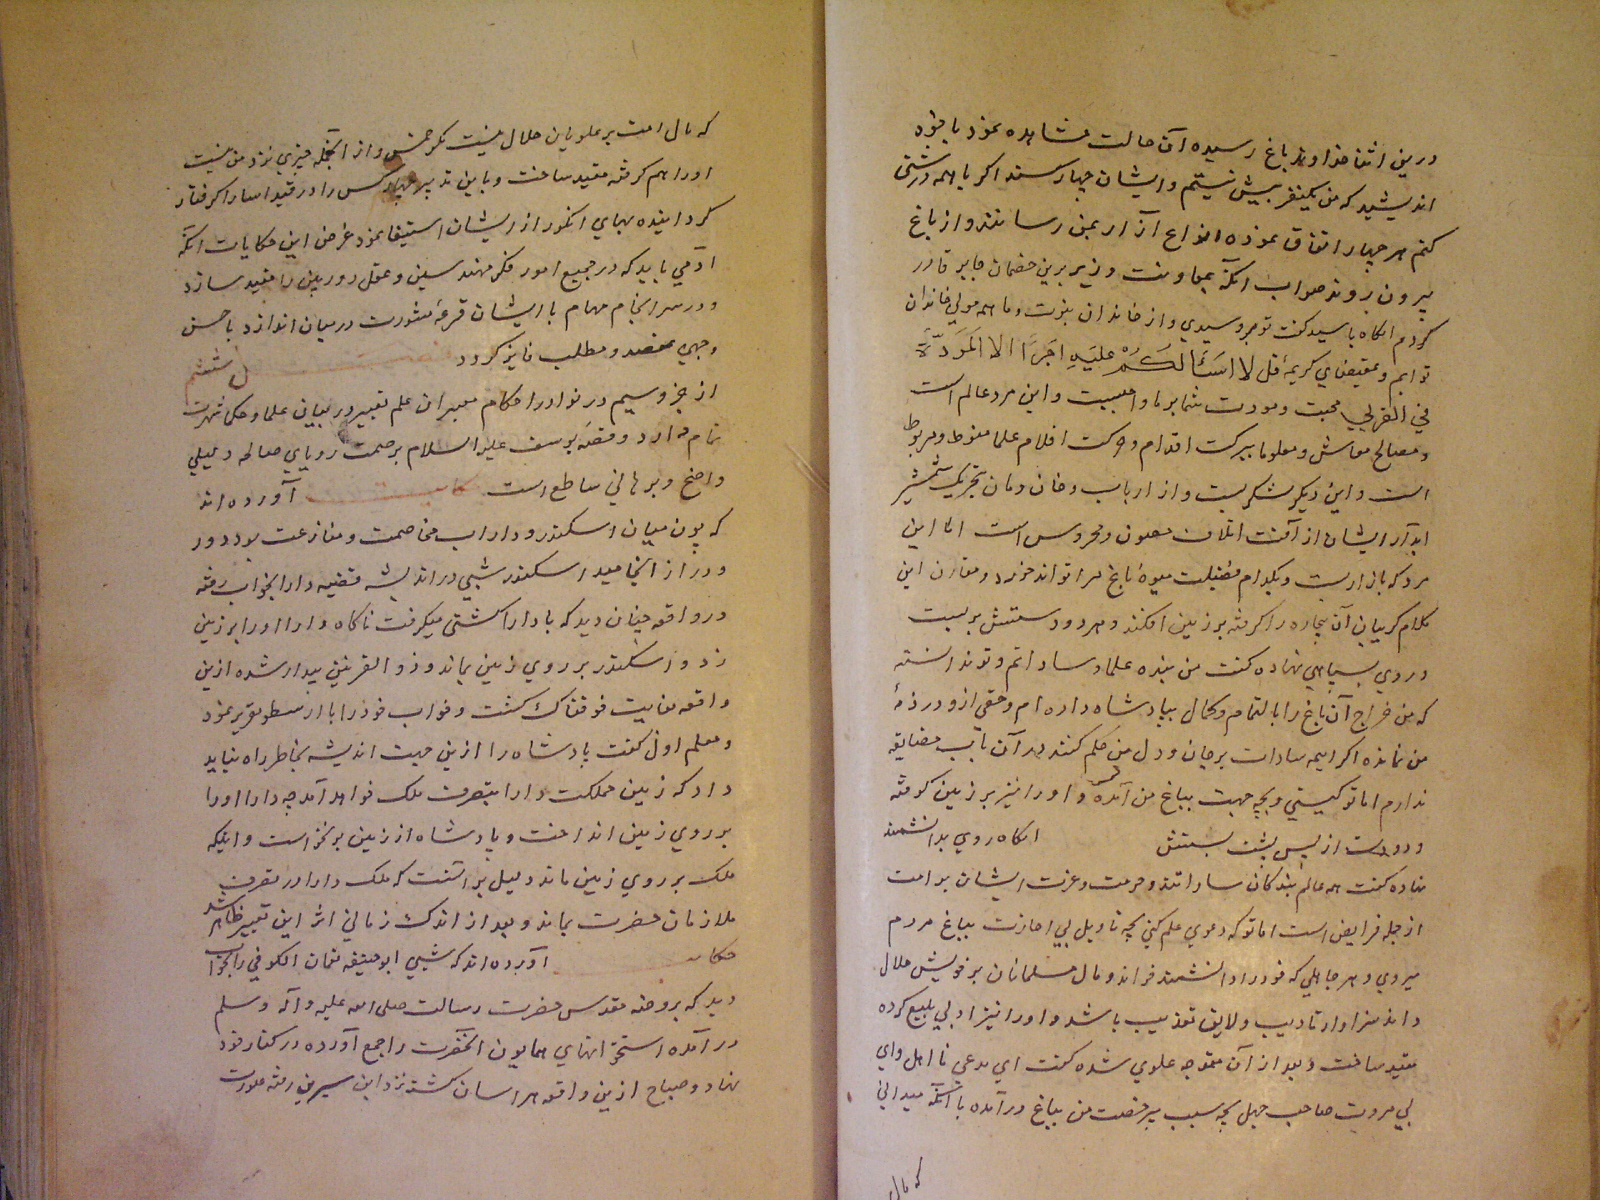 درین اثنا خداوند باغ رسیده آن حالت مشاهده نمود با خود
اندیشید که من یکنفر بیش نیستم و ایشان چهار کسند اگر با همه درشتی
کنم هر چهار اتفاق نموده انواع آزار بمن رسانند و از باغ
بیرون روند صواب آنکه بمعاونت وزیر برین خصمان جابر قادر
کردم انکاه با سید کفت تو مرد سیدی و از خاندان نبوت و ما همه مولی خاندان
توایم و بمقتضای کریمهٔ قل لا اسئالکم علیه اجرا الا المودة
فی القربی محبت و مودت شما بر ما واجبست و این مرد عالم است
و مصالح معاش و معلوما ببرکت اقدام و حرکت اقلام علما منوط و مربوط
است و این دیکر لشکریست و از ارباب و خان و مان بتحریک شمشیر
ابدار ایشان از آفت اتلاف مصون و محروس است اما این
مرد که بازاریست و بکدام فضیلت میوهٔ باغ مرا تواند خورد و مقارن این
کلام کریبان آن بیچاره را کرفته بر زمین افکند و هر دو دستش بر بست
و روی بسپاهی نهاده کفت من بنده علما و ساداتم و تو ندانسته
که من خراج آن باغ را بالتمام و کمال بپادشاه داده ام و حقی از و در ذمهٔ
من نمانده اکر ایمه سادات بر جان و دل من حکم کنند در آن باب مضایقه
ندارم اما تو کیستی و بچه جهت بباغ من آمدهٔ و او را نیز بر زمین کوفته
و دو دست از پس پشت ببستش انکاه روی بدانشمند
نهاده کفت همه عالم بندکان ساداتند و حرمت و عزت ایشان بر امت
از جمله فرایض است اما تو که دعوی علم کنی بچه تاویل بی اجازت بباغ مردم
میروی و هر جاهلی که خود را دانشمند خواند و مال مسلمانان بر خویش حلال
داند سزاوار تادیب و لایق تعذیب باشد و او را نیز ادبی بلیغ کرده
مقید ساخت و بعد از آن متوجه علوی شده کفت ای مدعی نا اهل و ای
بی مروت صاحب جهل بچه سبب بیرخصت من بباغ درآمده با آنکه میدانی
که مال
که مال امت بر علویان حلال نیست مکر خمس و از آنجمله چیزی نزد من نیست
او را هم کرفته مقید ساخت و باین تدبیر چهار کس را در قید اسار کرفتار
کردانیده بهای انکور از ایشان استیفا نمود غرض این حکایات آنکه
آدمی باید که در جمیع امور فکر مهندسین و عقل دوربین را مقید سازد
و در سرانجام مهام با ایشان قرعهٔ مشورت درمیان اندازد با حسن
وجهی بمقصد و مطلب فایز کردد
از جزو سیم در نوادر احکام معبران علم تعبیر در بیان علما و حکما شهرت
تمام دارد و قصهٔ یوسف علیه السلام بر صحت رویای صالحه دلیلی
واضح و برهانی ساطع است آورده اند
که چون میان اسکندر و داراب مخاصمت و منازعت بود دور
و دراز انجامید اسکندر شبی در اندیشه قضیه دارا بخواب رفته
در واقعه چنان دید که با دارا کشتی میکرفت ناکاه دارا او را بر زمین
زد و اسکندر بر روی زمین بماند و ذوالقرنین بیدار شده ازین
واقعه بغایت خوفناک کشت و خواب خود را با ارسطو تقریر نمود
و معلم اول کفت پادشاه را ازین جهت اندیشه بخاطر راه نباید
داد که زمین مملکت دارا بتصرف ملک خواهد آمد چه دارا او را
بر روی زمین انداخت و پادشاه از زمین برنخواست و اینکه
ملک بر روی زمین ماند دلیل بر آنست که ملک دارا در تصرف
ملازمان حضرت بماند و بعد از اندک زمانی اثر این تعبیر ظاهر شد
حکایت آورده اند که شبی ابو حنیفه نعمان الکوفی بخواب
دید که بروضه مقدس حضرت رسالت صلی الله علیه و آله وسلم
در آمده استخوانهای همایون آنحضرت را جمع آورده در کنار خود
نهاد و صباح ازین واقعه هراسان کشته نزد ابن سیرین رفته صورت